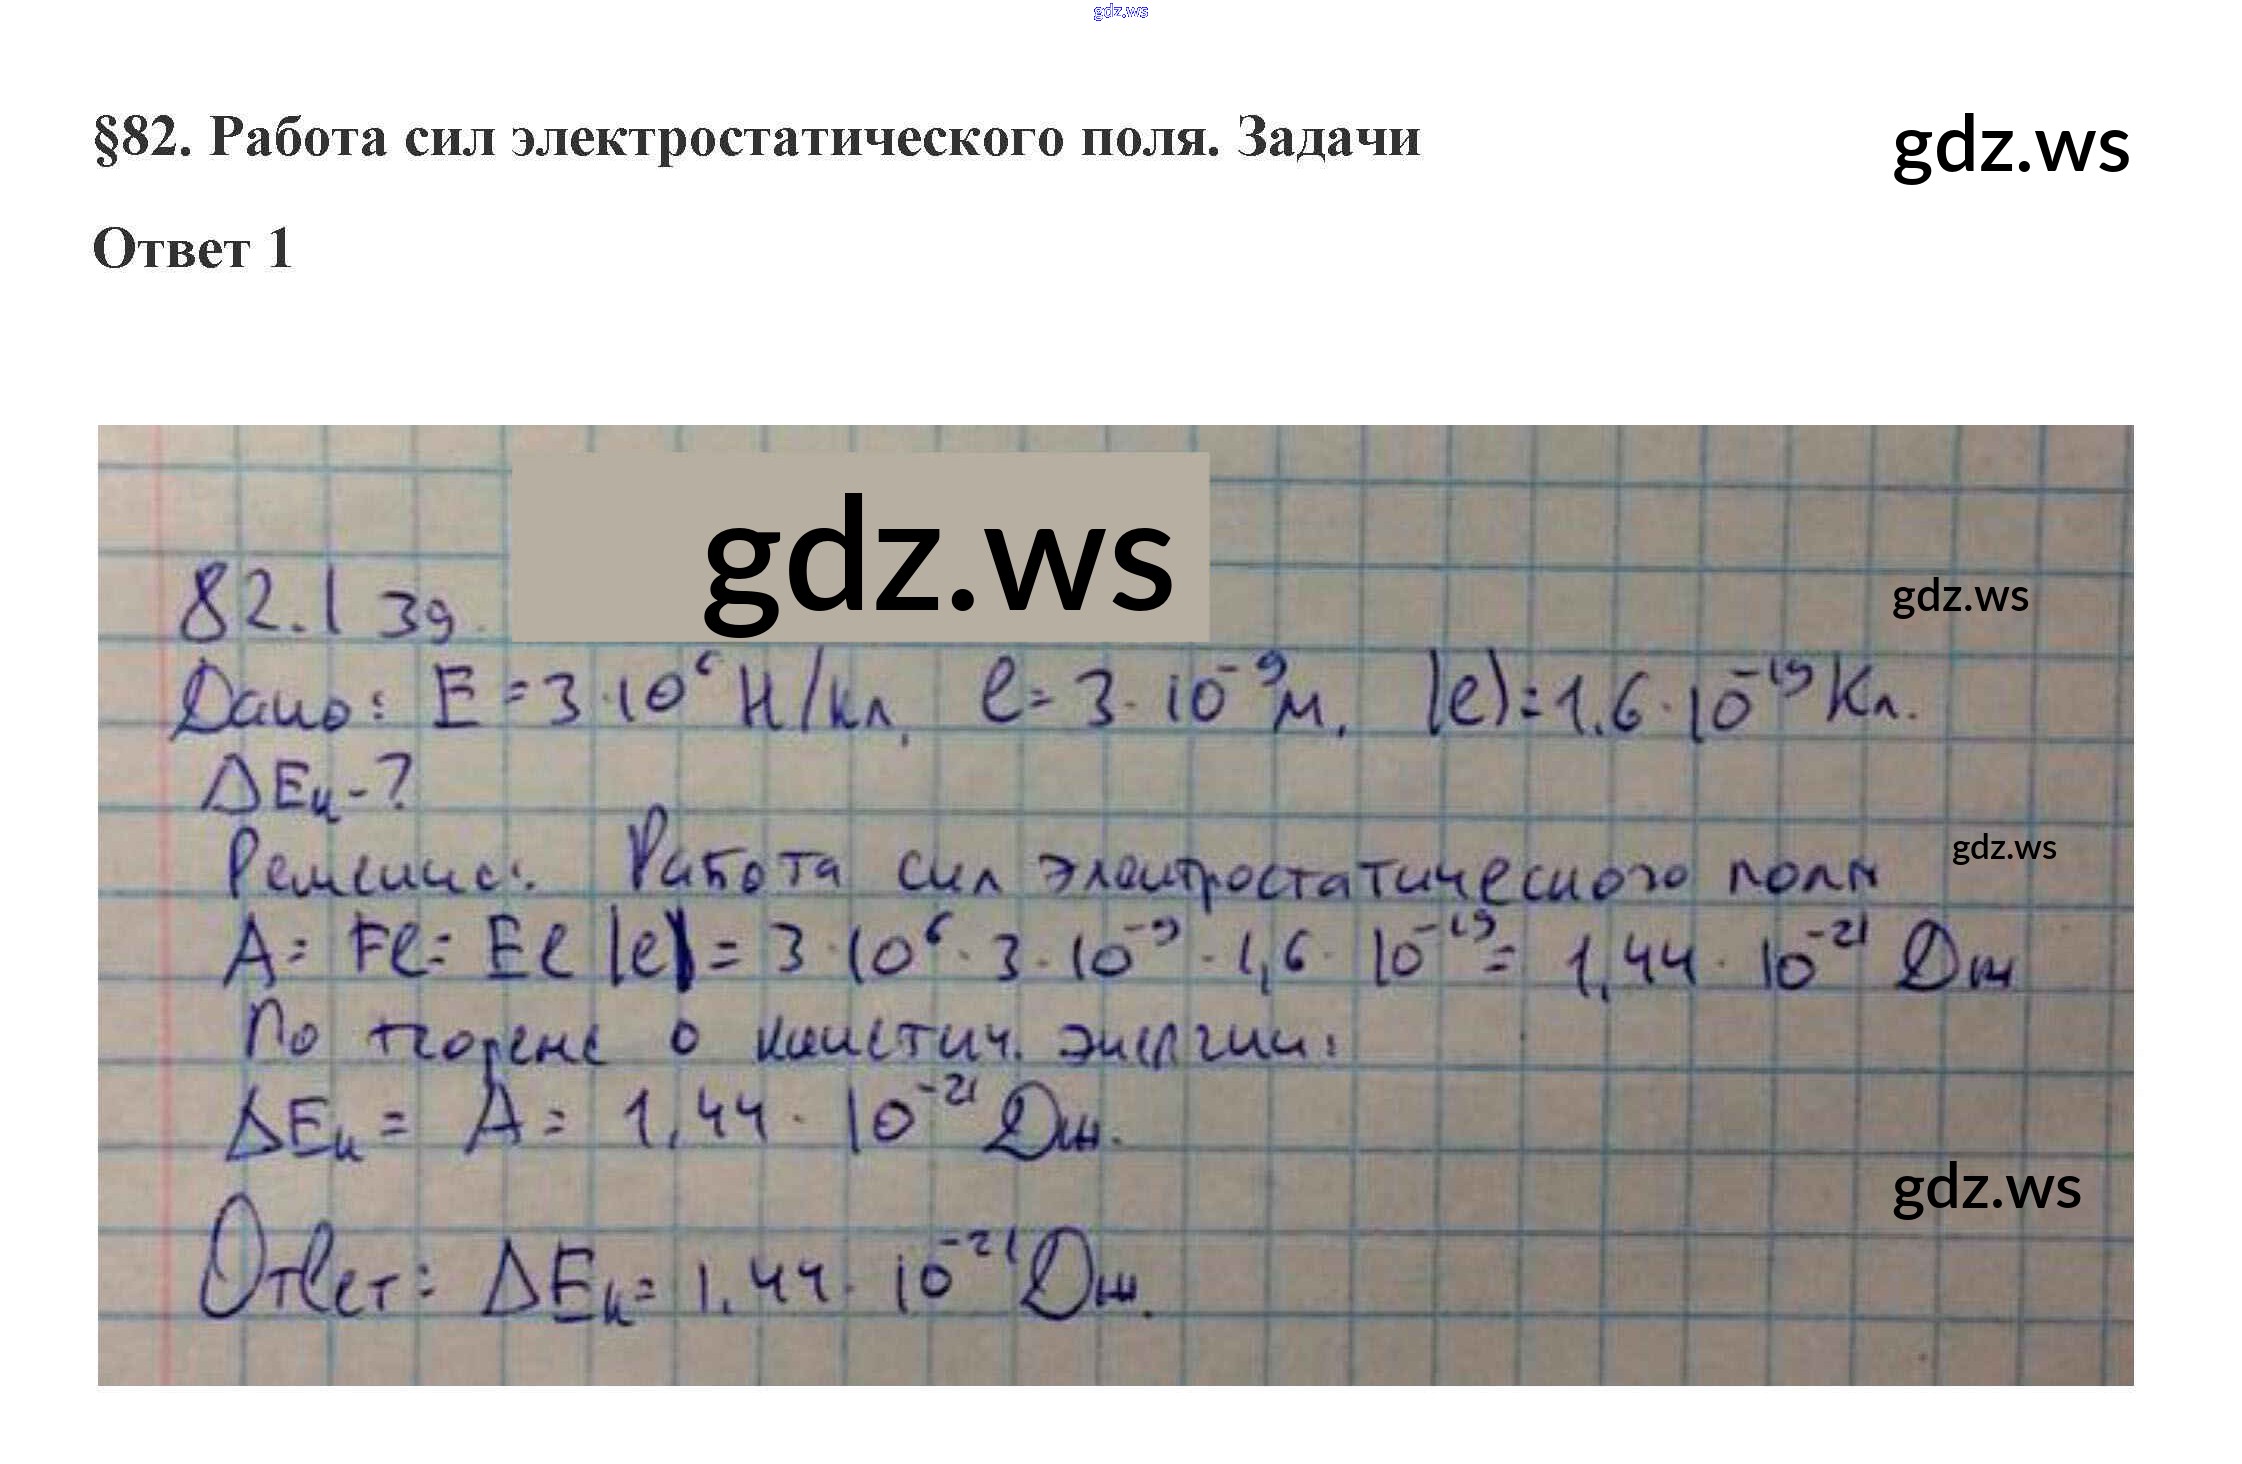 gdz.ws
§82. Работа сил электростатического поля. Задачи
gdz.ws
Ответ 1
gdz.ws
82.1 зд.
gdz.ws
Дано: E = 3·10⁶ Н/Кл, l = 3·10⁻⁹ м, |e| = 1,6·10⁻¹⁹ Кл.
ΔEк - ?
Решение: Работа сил электростатического поля
gdz.ws
A = Fl = El|e| = 3·10⁶·3·10⁻⁹·1,6·10⁻¹⁹ = 1,44·10⁻²¹ Дж
По теореме о кинетич. энергии:
ΔEк = A = 1,44·10⁻²¹ Дж.
gdz.ws
Ответ: ΔEк = 1,44·10⁻²¹ Дж.